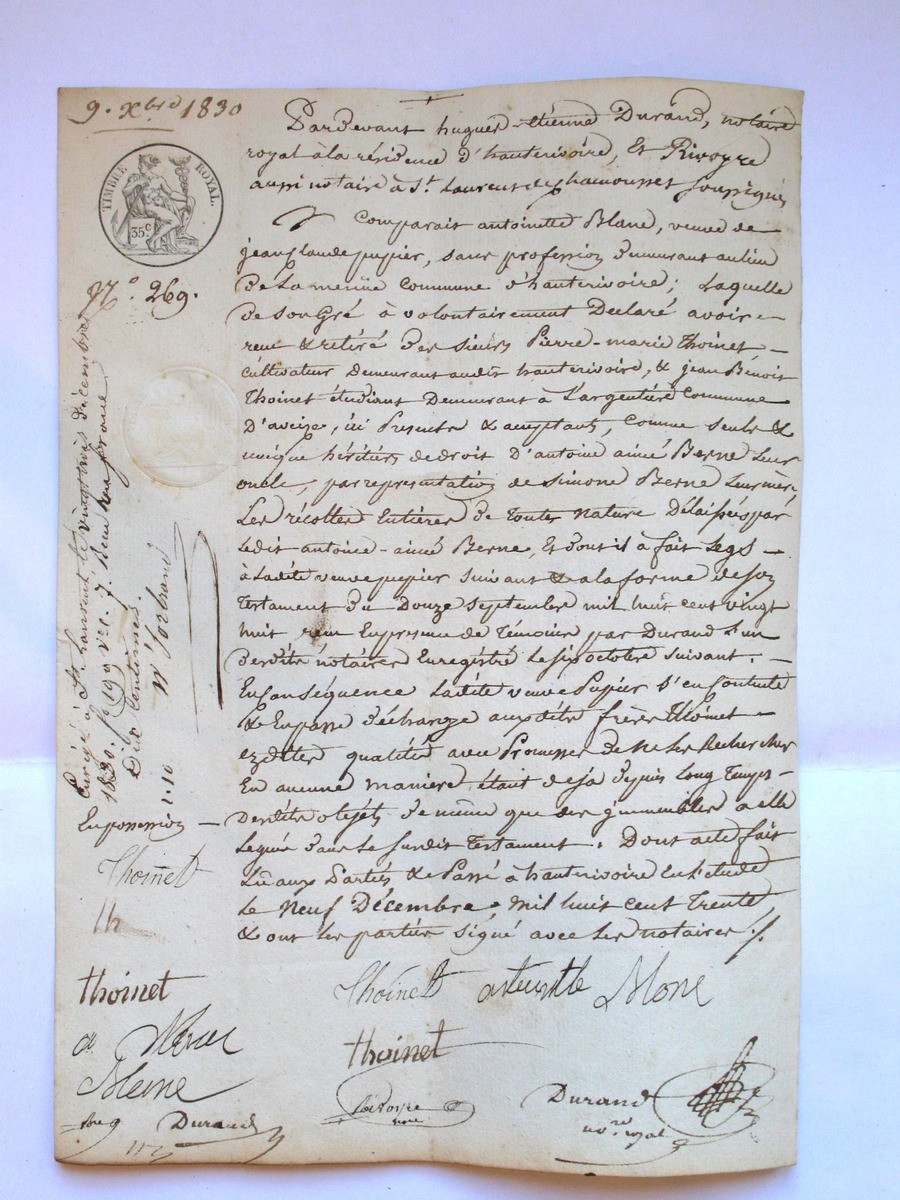 9. Xbre 1830
TIMBRE ROYAL.
35 c
No. 269.
Pardevant hugues-étienne Durand, notaire
royal à la résidence d'hauterivoire, et Rivoyre
aussi notaire à St. Laurent de chamousset soussignés
Comparait antoinette Blanc, veuve de
jean Claude pupier, sans profession demeurant au lieu
de La même commune d'hauterivoire; Laquelle
de son Gré à volontairement Déclaré avoir
reçu & retiré des sieurs Pierre-marie Thoinet
cultivateur demeurant audit hauterivoire, & jean Benoit
Thoinet étudiant Demeurant à L'argentière Commune
D'aveize, ici Presents & acceptants, comme seuls &
unique héritiers de droit d'antoine aimé Berne Leur
oncle, par representation de Simone Berne Leur mère
Les récoltes Entières de toutes Nature Délaissées par
Ledit antoine-aimé Berne, Et dont il à fait Legs
à Ladite veuve pupier suivant & a la forme de son
Testament du Douze septembre mil huit cent vingt
huit reçu En presence de Témoins par Durand L'un
desdits notaires Enregistré Le six octobre suivant.
En Conséquence Ladite veuve Pupier s'en Contente
& En passe décharge auxdits frères Thoinet
ezdites qualités avec Promesse de Ne Les Rechercher
En aucune manière étant deja depuis Long Temps
En possession
desdits objets de même que des immeubles a elle
Legués dans Le susdit Testament. Dont acte fait
Lû aux Parties & Passé à hauterivoire En L'étude
Le Neuf Décembre, mil huit cent Trente
& ont les parties signé avec Les notaires ./.
Enregé à St. Laurent le vingt trois décembre
1830. fo 199 vo c. 7. Reçu un franc
Dix Centimes.
1.10
Thoinet
th
thoinet
Durand
Thoinet
thoinet
Rivoyre
nore
Durand
no.re royal